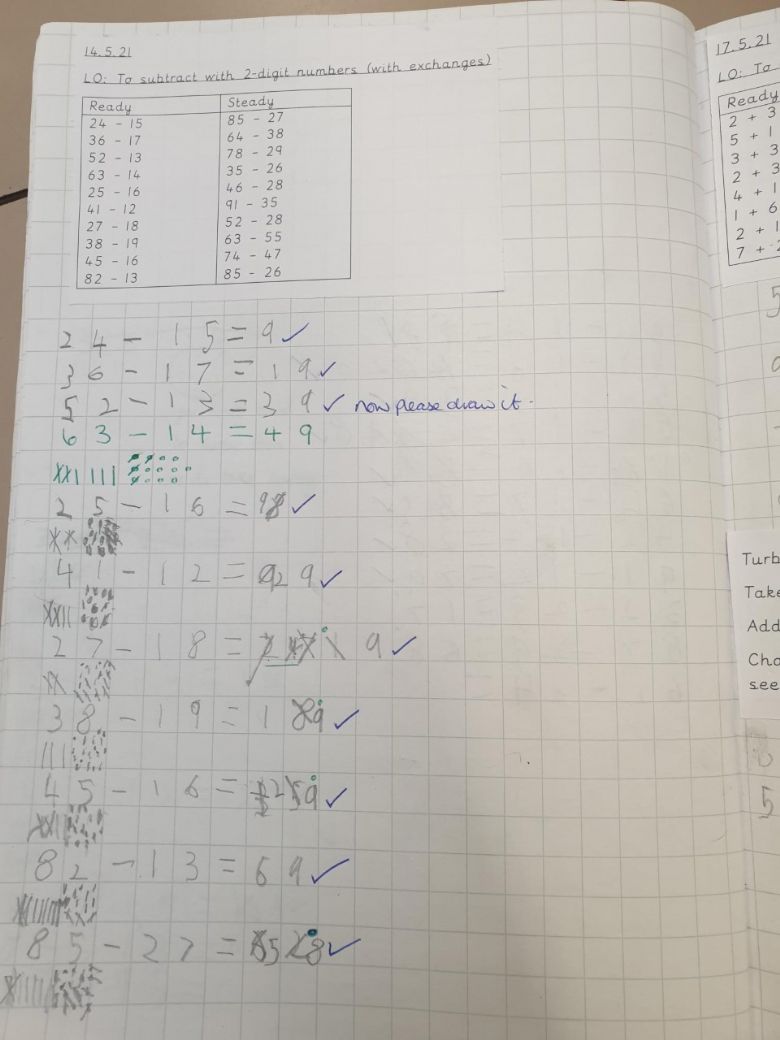 14.5.21
LO: To subtract with 2-digit numbers (with exchanges)
Ready Steady
24 - 15 85 - 27
36 - 17 64 - 38
52 - 13 78 - 29
63 - 14 35 - 26
25 - 16 46 - 28
41 - 12 91 - 35
27 - 18 52 - 28
38 - 19 63 - 55
45 - 16 74 - 47
82 - 13 85 - 26
24 - 15 = 9 ✓
36 - 17 = 19 ✓
52 - 13 = 39 ✓ now please draw it.
63 - 14 = 49
25 - 16 = 9 ✓
41 - 12 = 29 ✓
27 - 18 = 9 ✓
38 - 19 = 19 ✓
45 - 16 = 29 ✓
82 - 13 = 69 ✓
85 - 27 = 58 ✓
17.5.21
LO: To
Ready
2 + 3
5 + 1
3 + 3
2 + 3
4 + 1
1 + 6
2 + 1
7 + 2
5
Turb
Take
Add
Cha
see
5